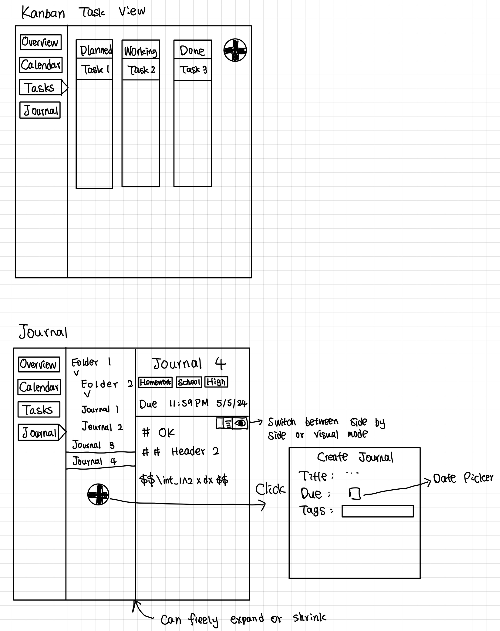 Kanban Task View
Overview
Calendar
Tasks
Journal
Planned
Task 1
Working
Task 2
Done
Task 3
Journal
Overview
Calendar
Tasks
Journal
Folder 1
Folder 2
Journal 1
Journal 2
Journal 3
Journal 4
Journal 4
Homework School High
Due 11:59 PM 5/5/24
# OK
## Header 2
$$ \int_1^2 x dx $$
Switch between side by
side or visual mode
Click
Create Journal
Title : ...
Due :
Tags :
Date Picker
Can freely expand or shrink